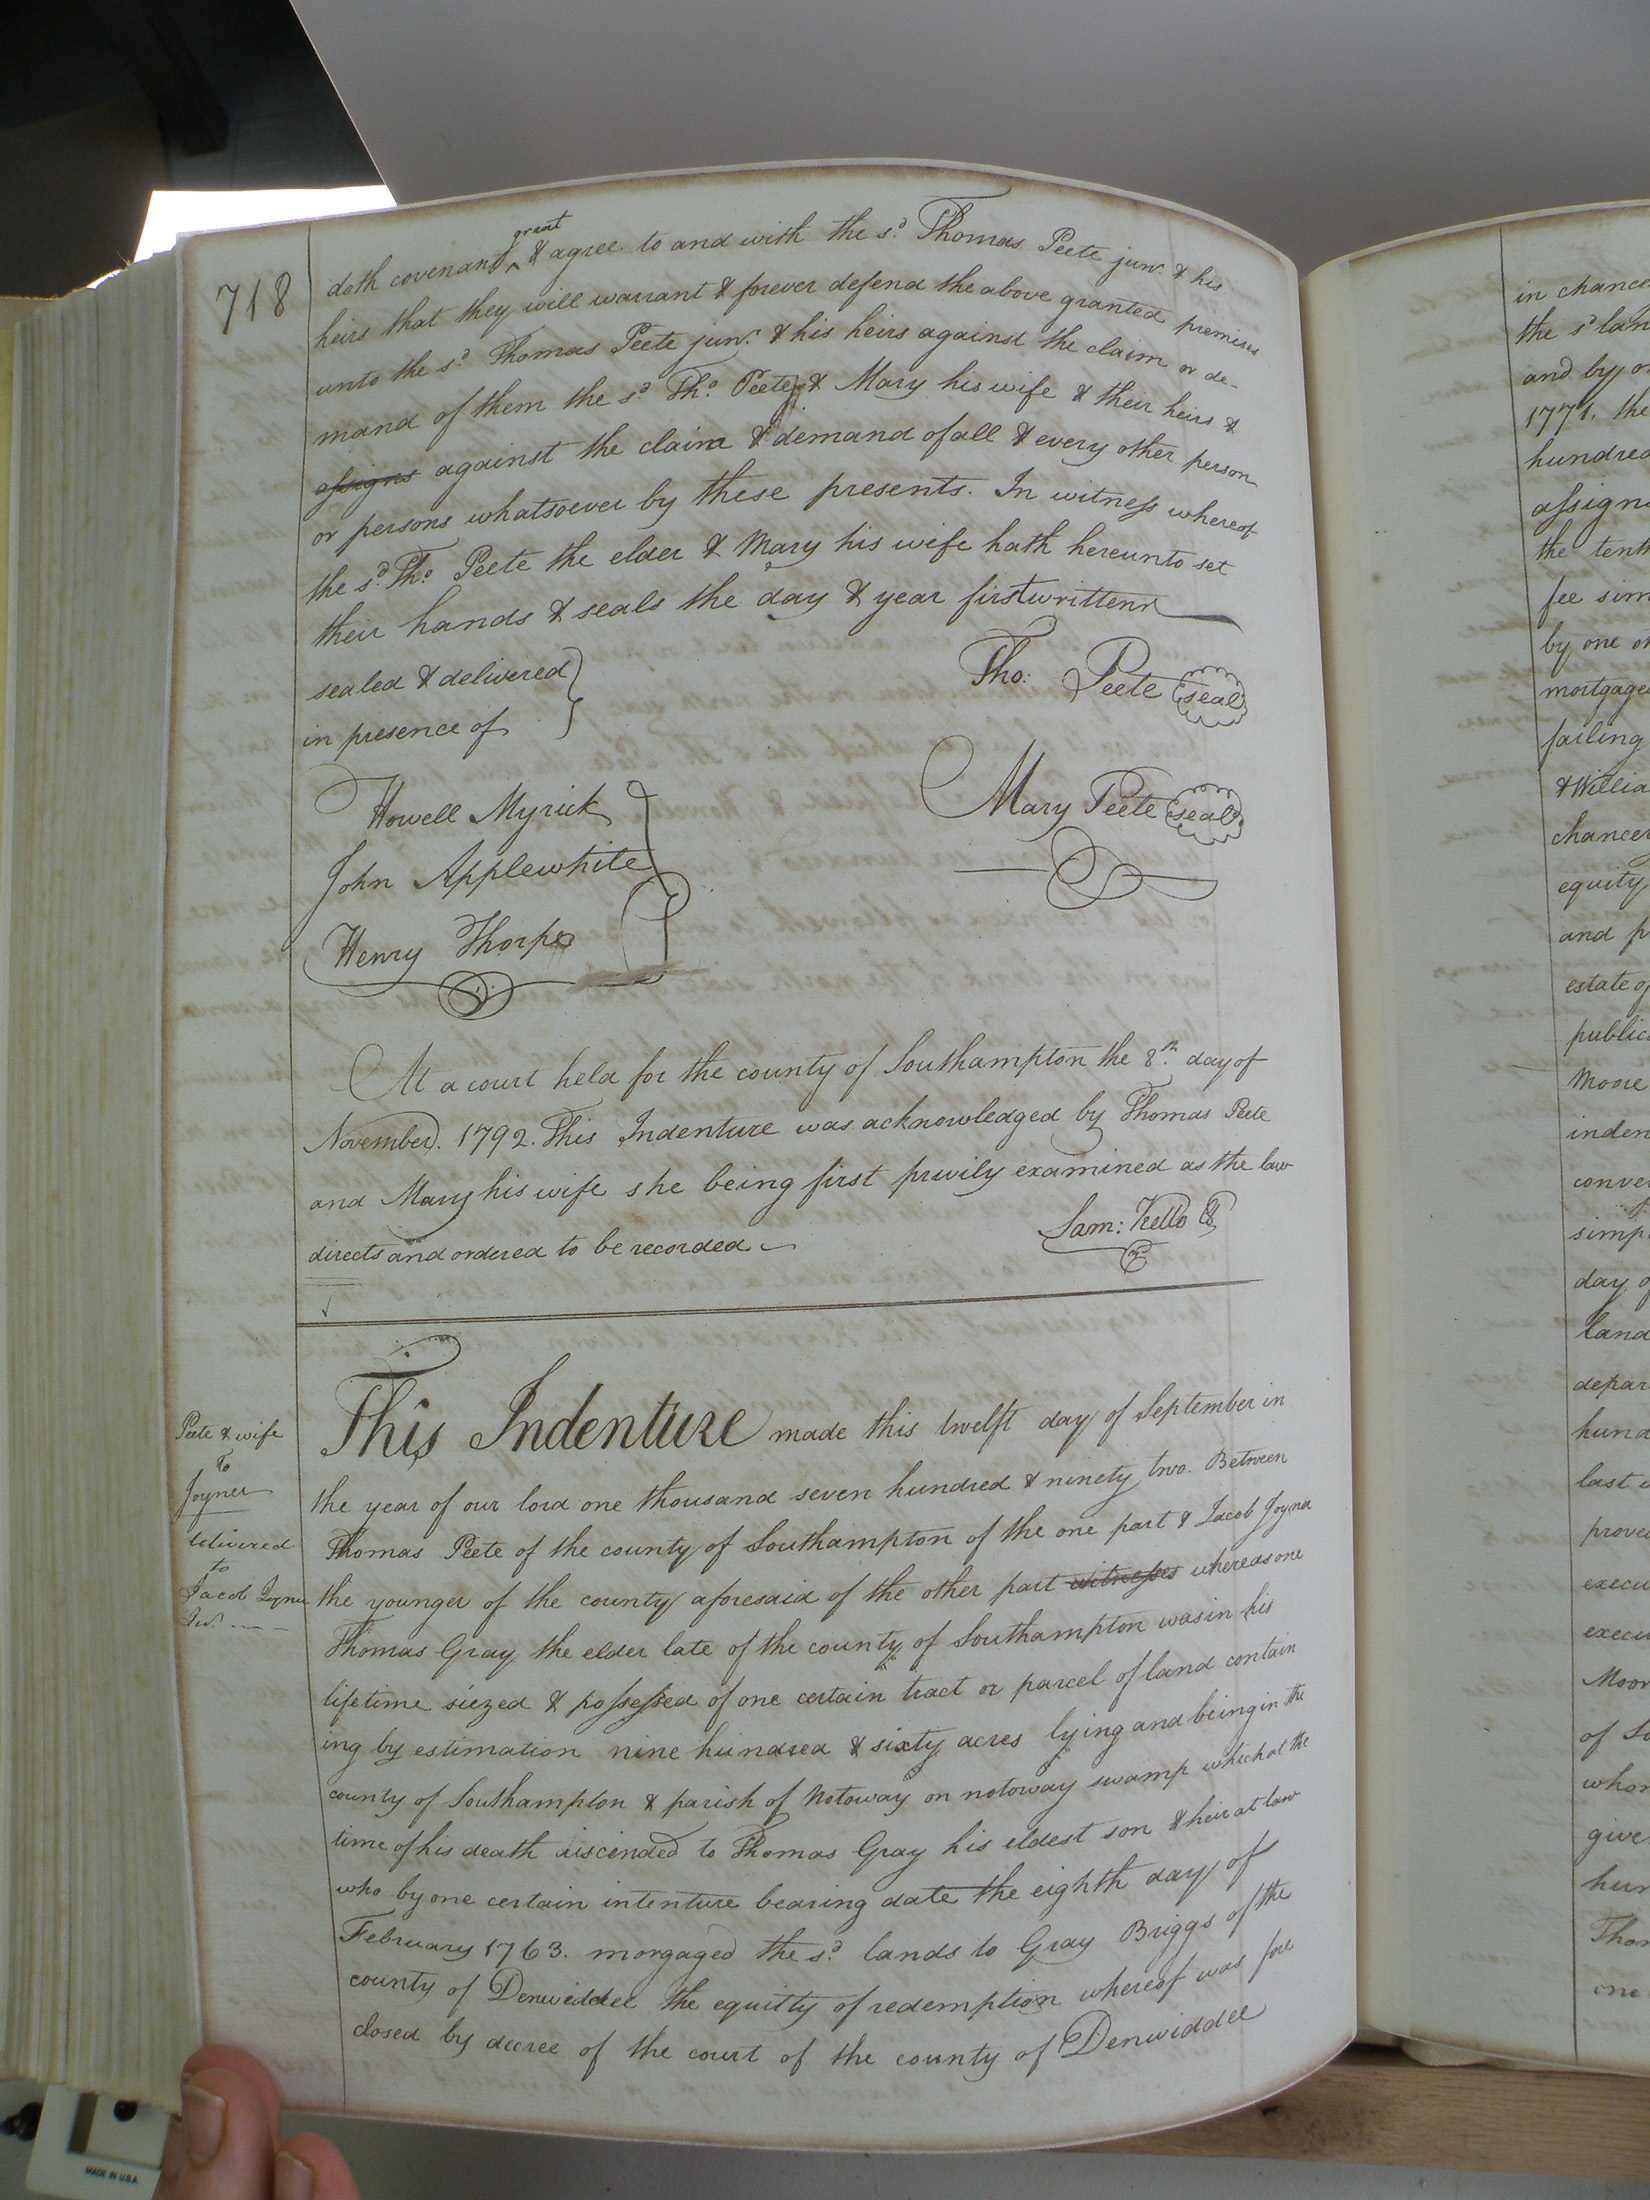 718
doth covenant grant & agree to and with the sd. Thomas Peete junr. & his
heirs that they will warrant & forever defend the above granted premises
unto the sd. Thomas Peete junr. & his heirs against the claim or de-
mand of them the sd. Tho. Peete & Mary his wife & their heirs &
assigns against the claim & demand of all & every other person
or persons whatsoever by these presents. In witness whereof
the sd. Tho. Peete the elder & Mary his wife hath hereunto set
their hands & seals the day & year first written
sealed & delivered
in presence of
Tho: Peete seal
Howell Myrick
Mary Peete seal
John Applewhite
Henry Thorpe
At a court held for the county of Southampton the 8th. day of
November. 1792. This Indenture was acknowledged by Thomas Peete
and Mary his wife she being first privily examined as the law
directs and ordered to be recorded
Sam: Kello
Peete & wife
to
Joyner
delivered
to
Jacob Joyner
Jur.
This Indenture made this twelft day of September in
the year of our lord one thousand seven hundred & ninety two. Between
Thomas Peete of the county of Southampton of the one part & Jacob Joyner
the younger of the county aforesaid of the other part witnesses whereas one
Thomas Gray the elder late of the county of Southampton was in his
lifetime siezed & possessed of one certain tract or parcel of land contain
ing by estimation nine hundred & sixty acres lying and being in the
county of Southampton & parish of Notoway on notoway swamp which at the
time of his death discended to Thomas Gray his eldest son & heir at law
who by one certain intenture bearing date the eighth day of
February 1763. morgaged the sd. lands to Gray Briggs of the
county of Denwiddee the equitty of redemption whereof was fore
closed by decree of the court of the county of Denwiddee
in chance
the sd lan
and by
1771. the
hundred
assign
the tenth
fee sim
by one
mortgage
failing
& Willia
chancer
equity
and
estate of
public
Moore
inden
conve
simp
day
land
depar
hund
last
prove
execu
execu
Moor
of
whom
give
hun
Thom
one
MADE IN U.S.A.